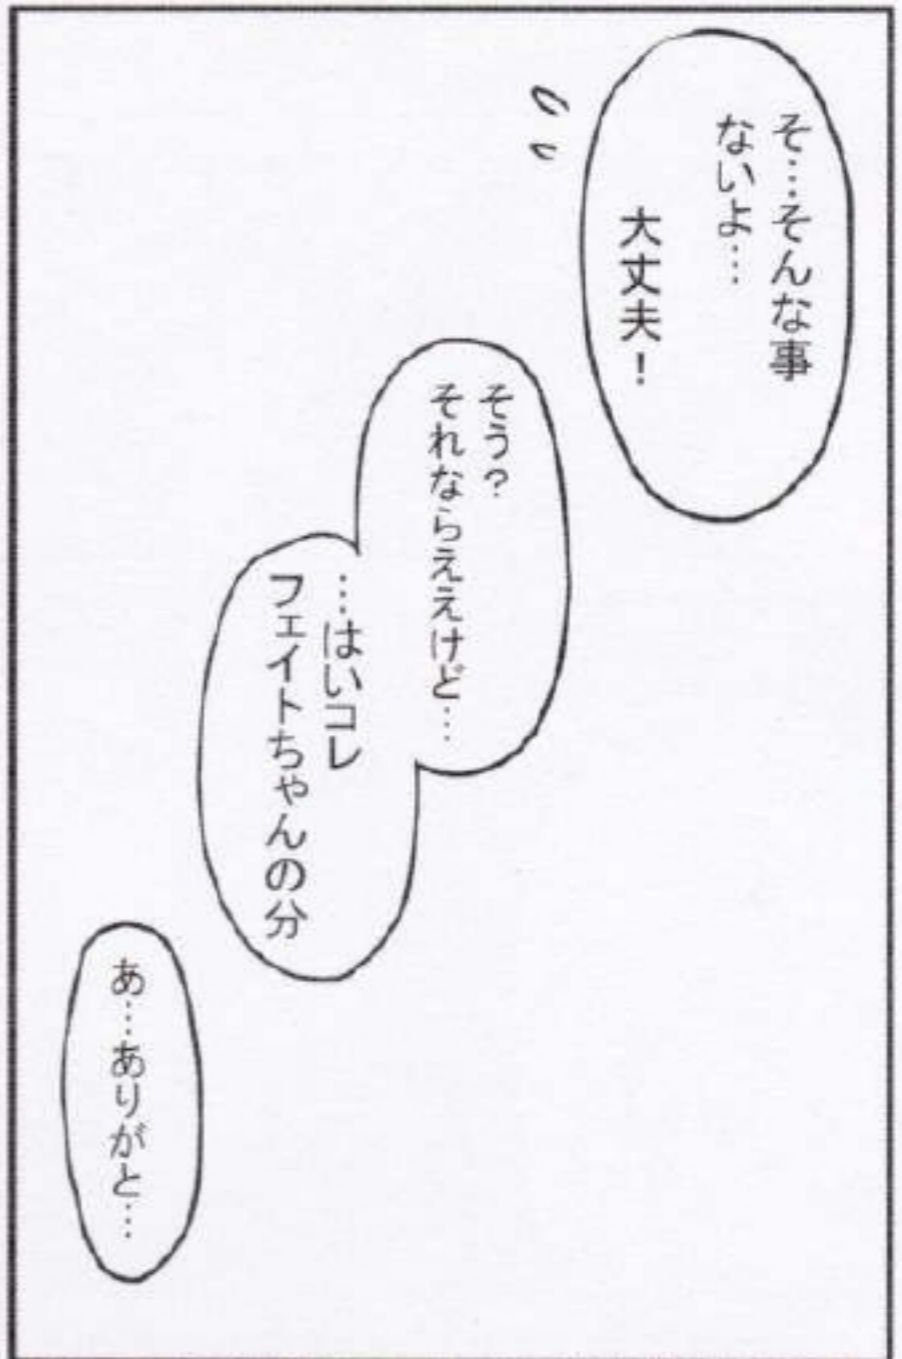 そ…そんな事
ないよ…
大丈夫！
そう？
それならええけど…
…はいコレ
フェイトちゃんの分
あ…ありがと…